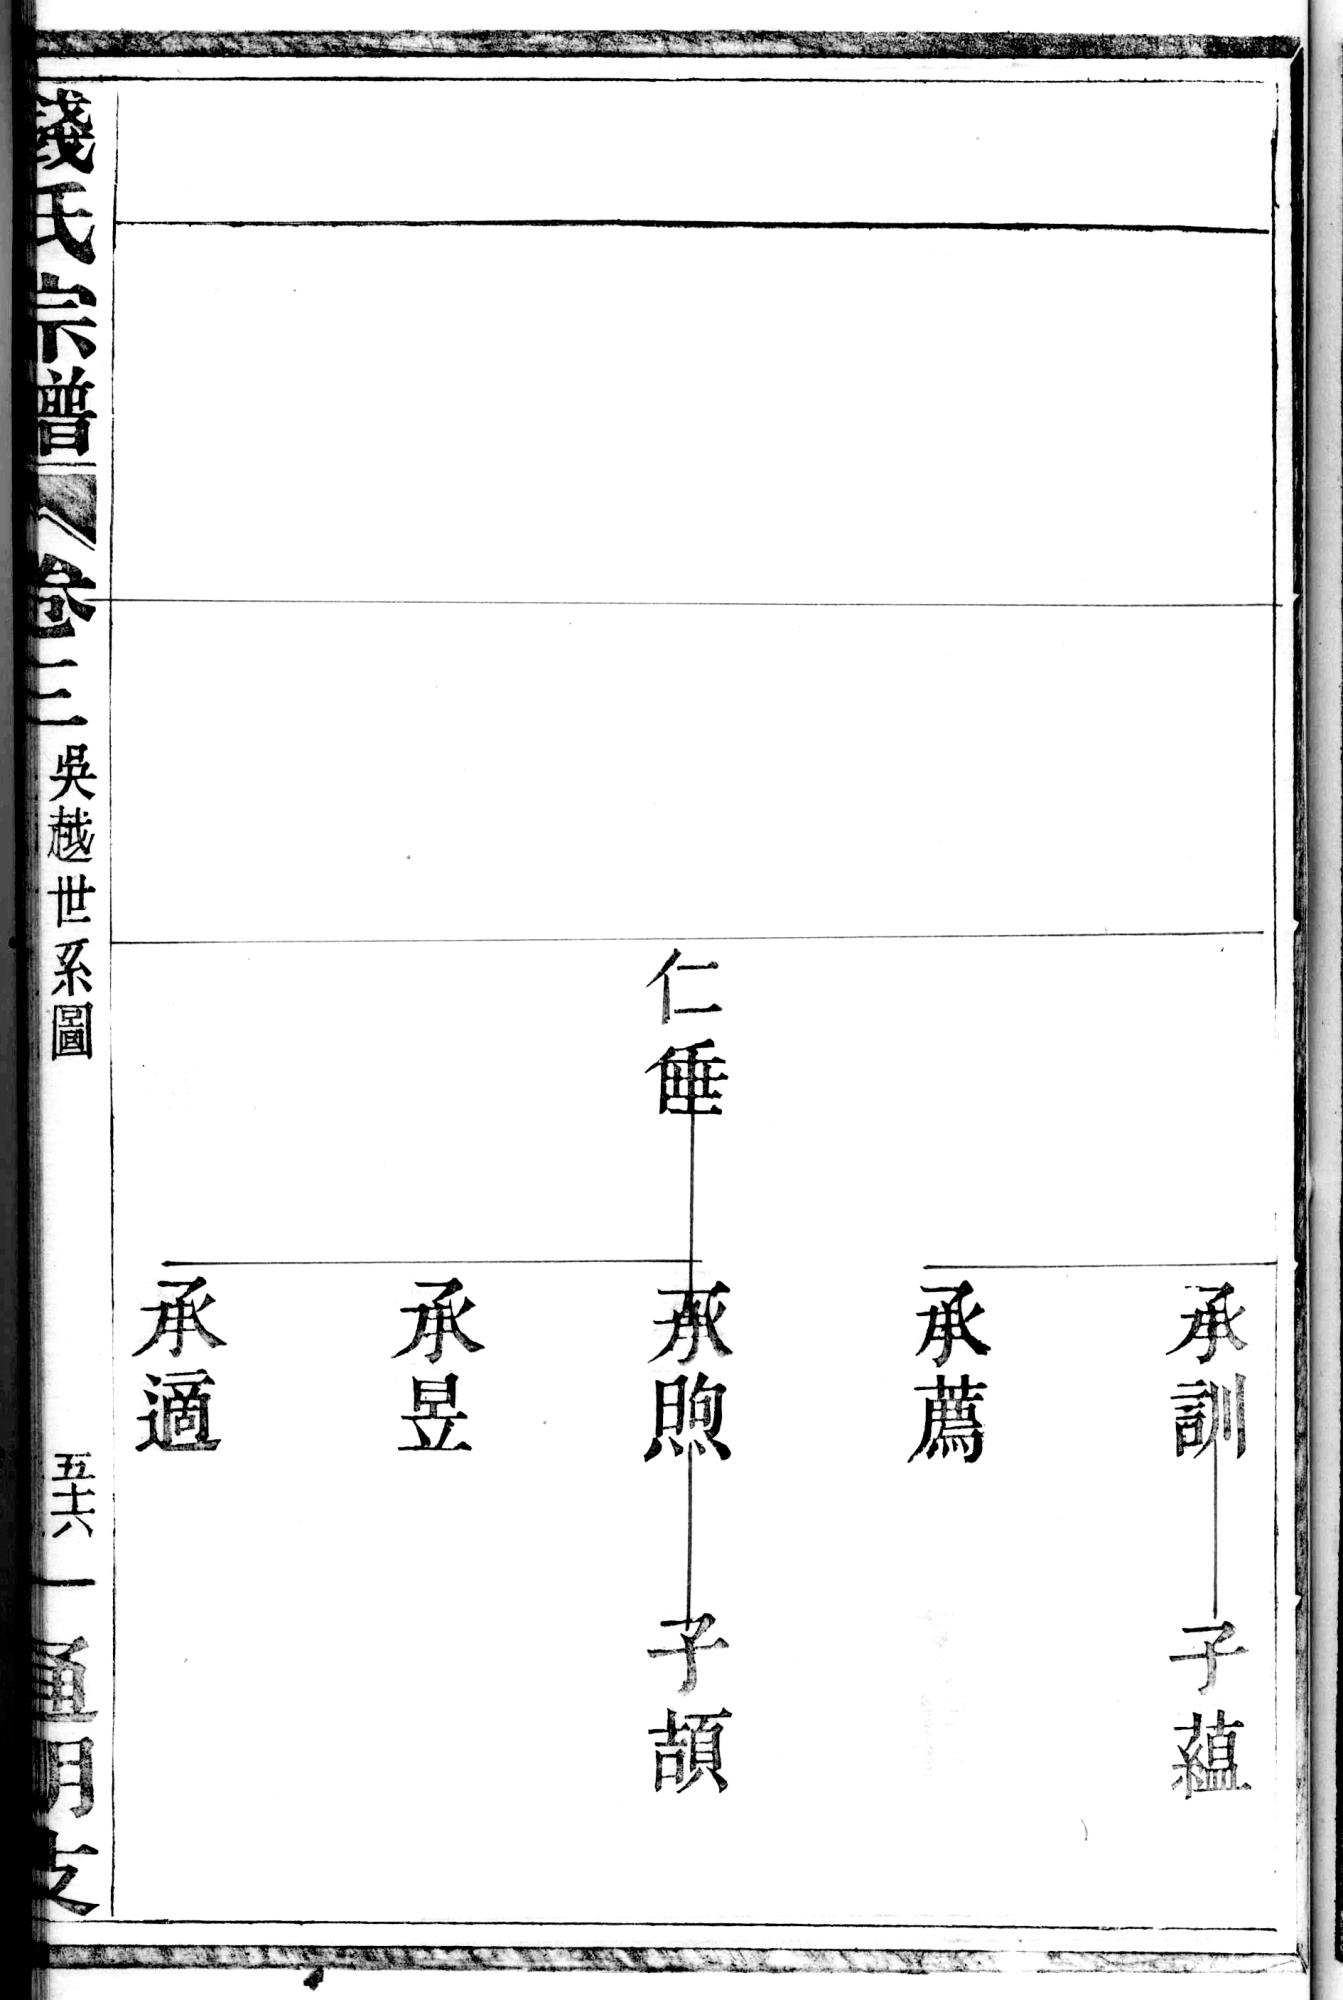 承訓
子蘊
承薦
仁倕
承煦
子頡
承昱
承適
錢氏宗譜
卷三
吳越世系圖
五十六
一
通明支